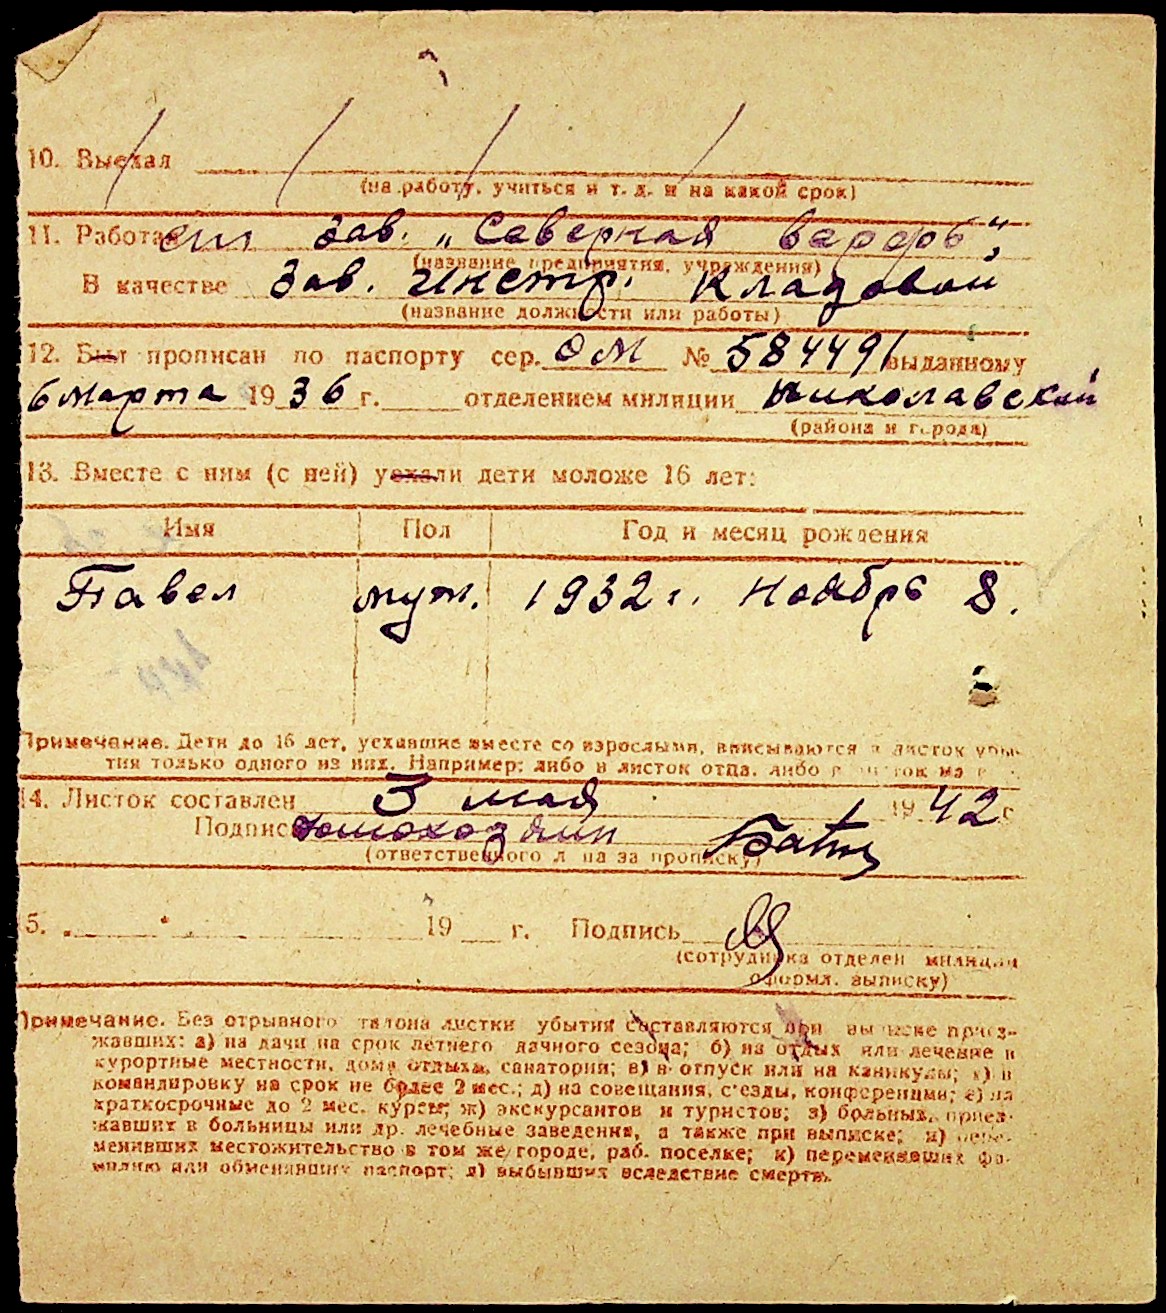 10. Выехал
(на работу, учиться и т. д. и на какой срок)
11. Работал зав. „Северная верфь“,
(название предприятия, учреждения)
В качестве Зав. Инстр. Кладовой
(название должности или работы)
12. Был прописан по паспорту сер. ОМ № 584491 выданному
6 Марта 1936 г. отделением милиции Николаевский
(района и города)
13. Вместе с ним (с ней) уехали дети моложе 16 лет:
Имя Пол Год и месяц рождения
Павел муж. 1932 г. Ноябрь 8.
Примечание. Дети до 16 лет, уехавшие вместе со взрослыми, вписываются в листок убы-
тия только одного из них. Например: либо в листок отца, либо в листок ма
14. Листок составлен 3 мая 1942 г
Подпись домохозяин
(ответственного л ца за прописку)
5. 19 г. Подпись
(сотрудника отделен милиции
оформл. выписку)
Примечание. Без отрывного талона листки убытия составляются при выписке приез-
жавших: а) на дачи на срок летнего дачного сезона; б) на отдых или лечение в
курортные местности, дома отдыха, санатории; в) в отпуск или на каникулы; г) в
командировку на срок не более 2 мес.; д) на совещания, с'езды, конференции; е) на
краткосрочные до 2 мес. курсы; ж) экскурсантов и туристов; з) больных, приез-
жавших в больницы или др. лечебные заведения, а также при выписке; и) пере-
менивших местожительство в том же городе, раб. поселке; к) переменивших фа-
милию или обменявших паспорт; л) выбывших вследствие смерти.